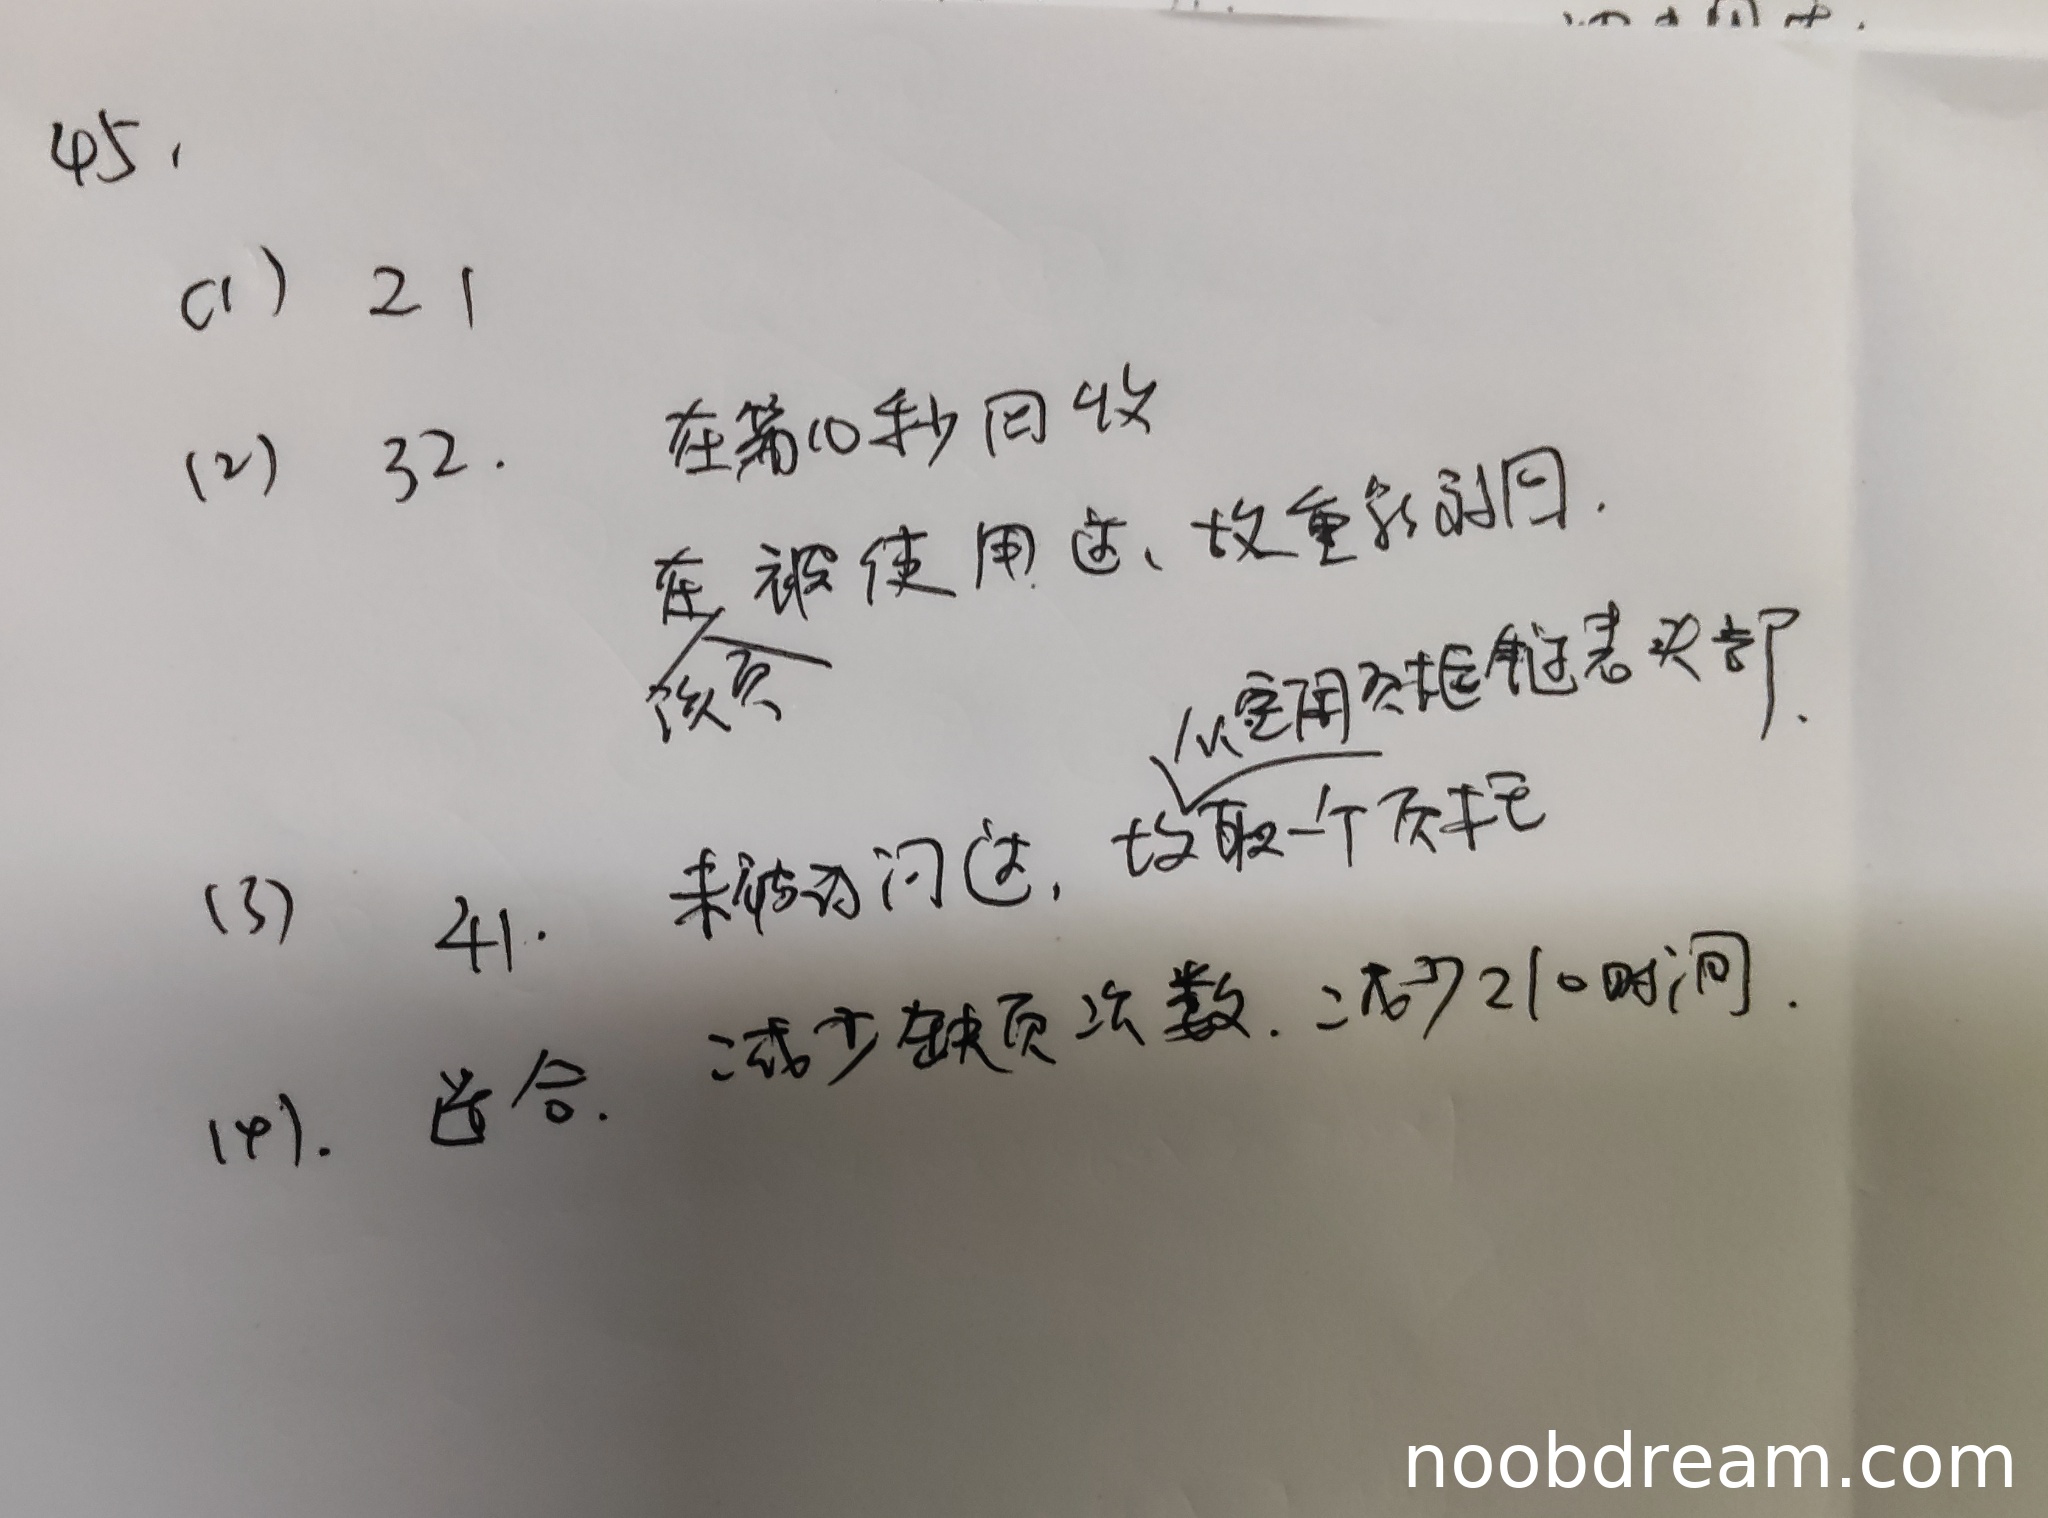 45.
(1) 21
(2) 32. 在第10秒回收
在被使用过、故重新别回.
该页
从空闲页框链表头部.
(3) 41. 未被访问过, 故取一个页框
(4). 适合. 减少缺页次数. 减少210时间.
noobdream.com